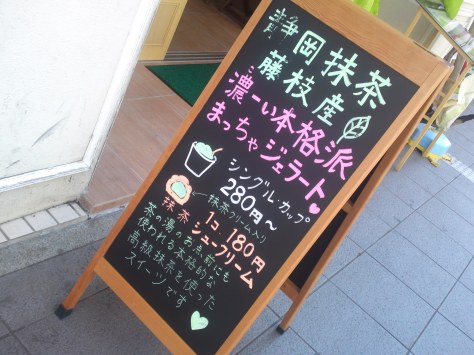 静岡抹茶
藤枝産
濃ーい本格派
まっちゃジェラート
シングル・カップ
280円〜
抹茶クリーム入り
1コ 180円
抹茶 シュークリーム
茶の湯のお点前にも
使われる本格的な
高級抹茶を使った
スイーツです